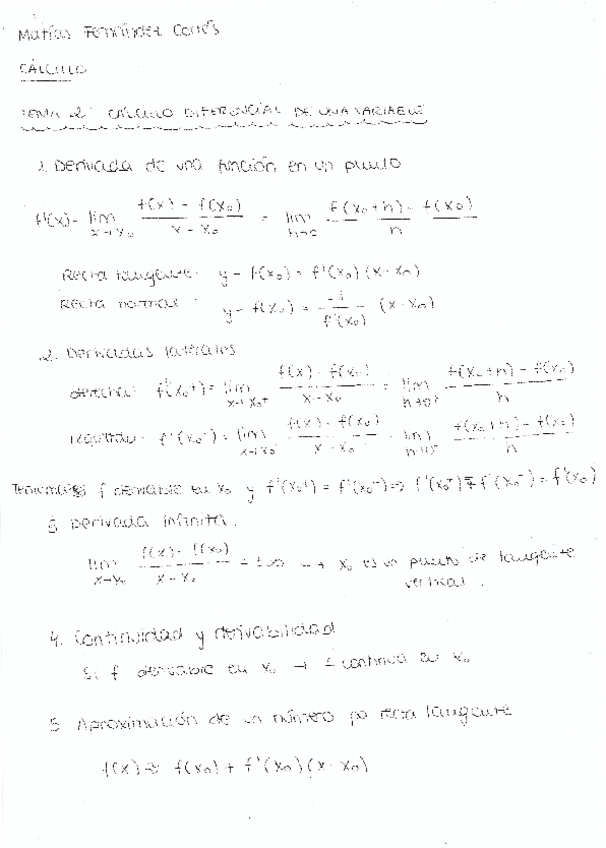 Matías Fernández Cortés
CÁLCULO
TEMA 2: CÁLCULO DIFERENCIAL DE UNA VARIABLE
1. Derivada de una función en un punto
f'(x) = lim x→x₀ (f(x) - f(x₀))/(x - x₀) = lim h→0 (f(x₀+h) - f(x₀))/h
Recta tangente: y - f(x₀) = f'(x₀)(x-x₀)
Recta normal: y - f(x₀) = -1/f'(x₀) (x-x₀)
2. Derivadas laterales
derecha: f'(x₀⁺) = lim x→x₀⁺ (f(x) - f(x₀))/(x-x₀) = lim h→0⁺ (f(x₀+h) - f(x₀))/h
izquierda: f'(x₀⁻) = lim x→x₀⁻ (f(x) - f(x₀))/(x-x₀) = lim (f(x₀+h) - f(x₀))/h
f derivable en x₀ y f'(x₀⁺) = f'(x₀⁻) => f'(x₀⁺) = f'(x₀⁻) = f'(x₀)
3. Derivada infinita.
lim x→x₀ (f(x) - f(x₀))/(x-x₀) = ±∞ → x₀ es un punto de tangente
vertical.
4. Continuidad y derivabilidad
Si f derivable en x₀ → f continua en x₀
5. Aproximación de un número po recta tangente
f(x) ≈ f(x₀) + f'(x₀)(x-x₀)